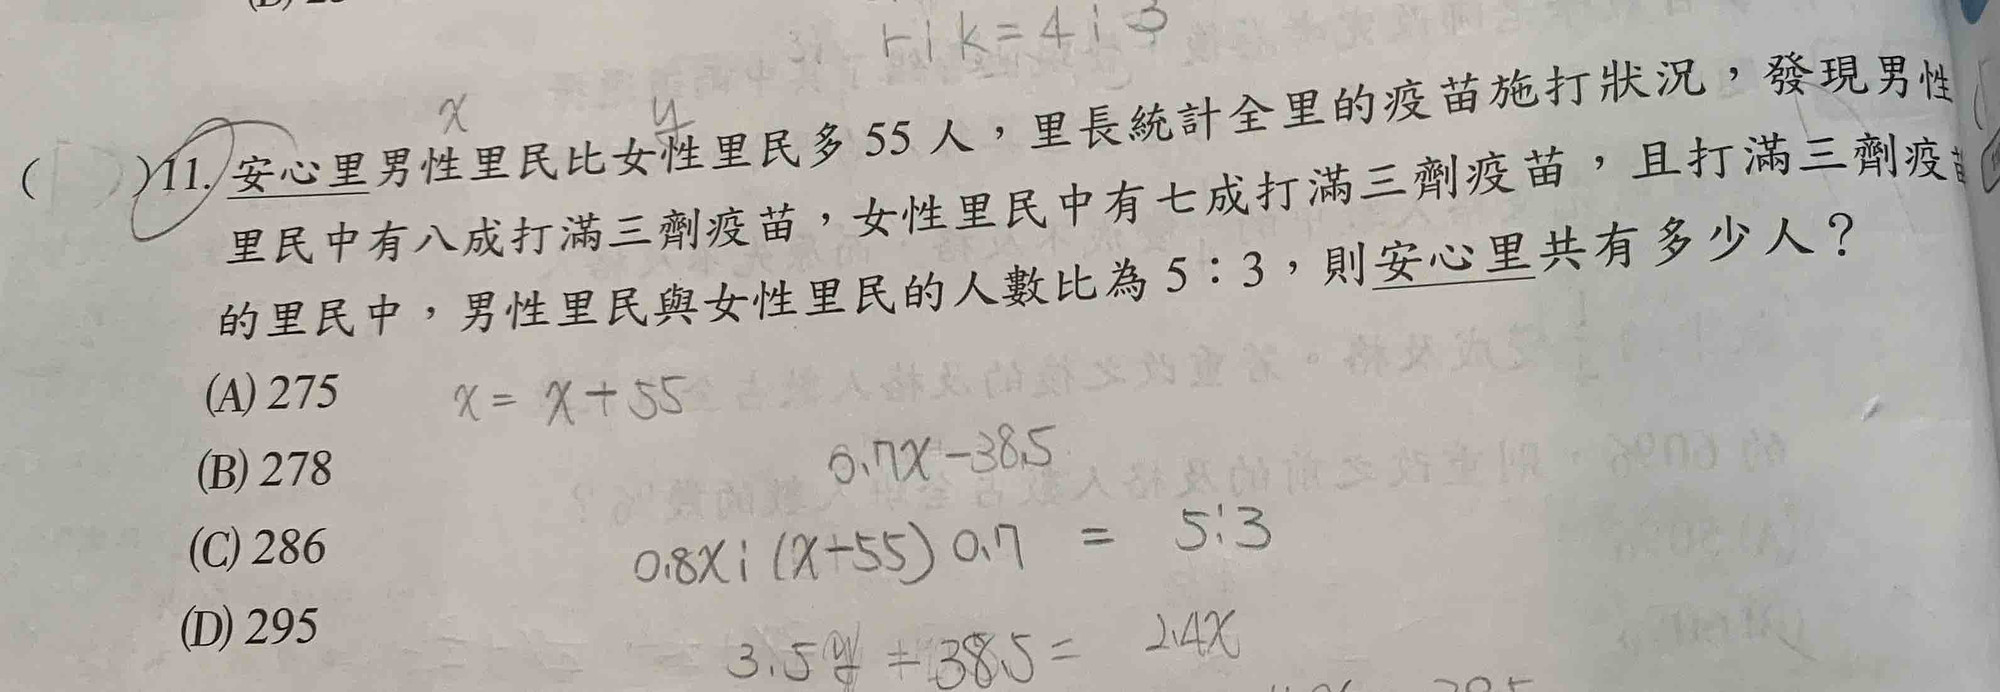 r:k=4:3
x y
( )11. 安心里男性里民比女性里民多 55 人，里長統計全里的疫苗施打狀況，發現男性
里民中有八成打滿三劑疫苗，女性里民中有七成打滿三劑疫苗，且打滿三劑疫苗
的里民中，男性里民與女性里民的人數比為 5：3，則安心里共有多少人？
(A) 275
x = x+55
(B) 278
0.7x-38.5
(C) 286
0.8x:(x-55) 0.7 = 5:3
(D) 295
3.5 - 38.5 = 2.4x